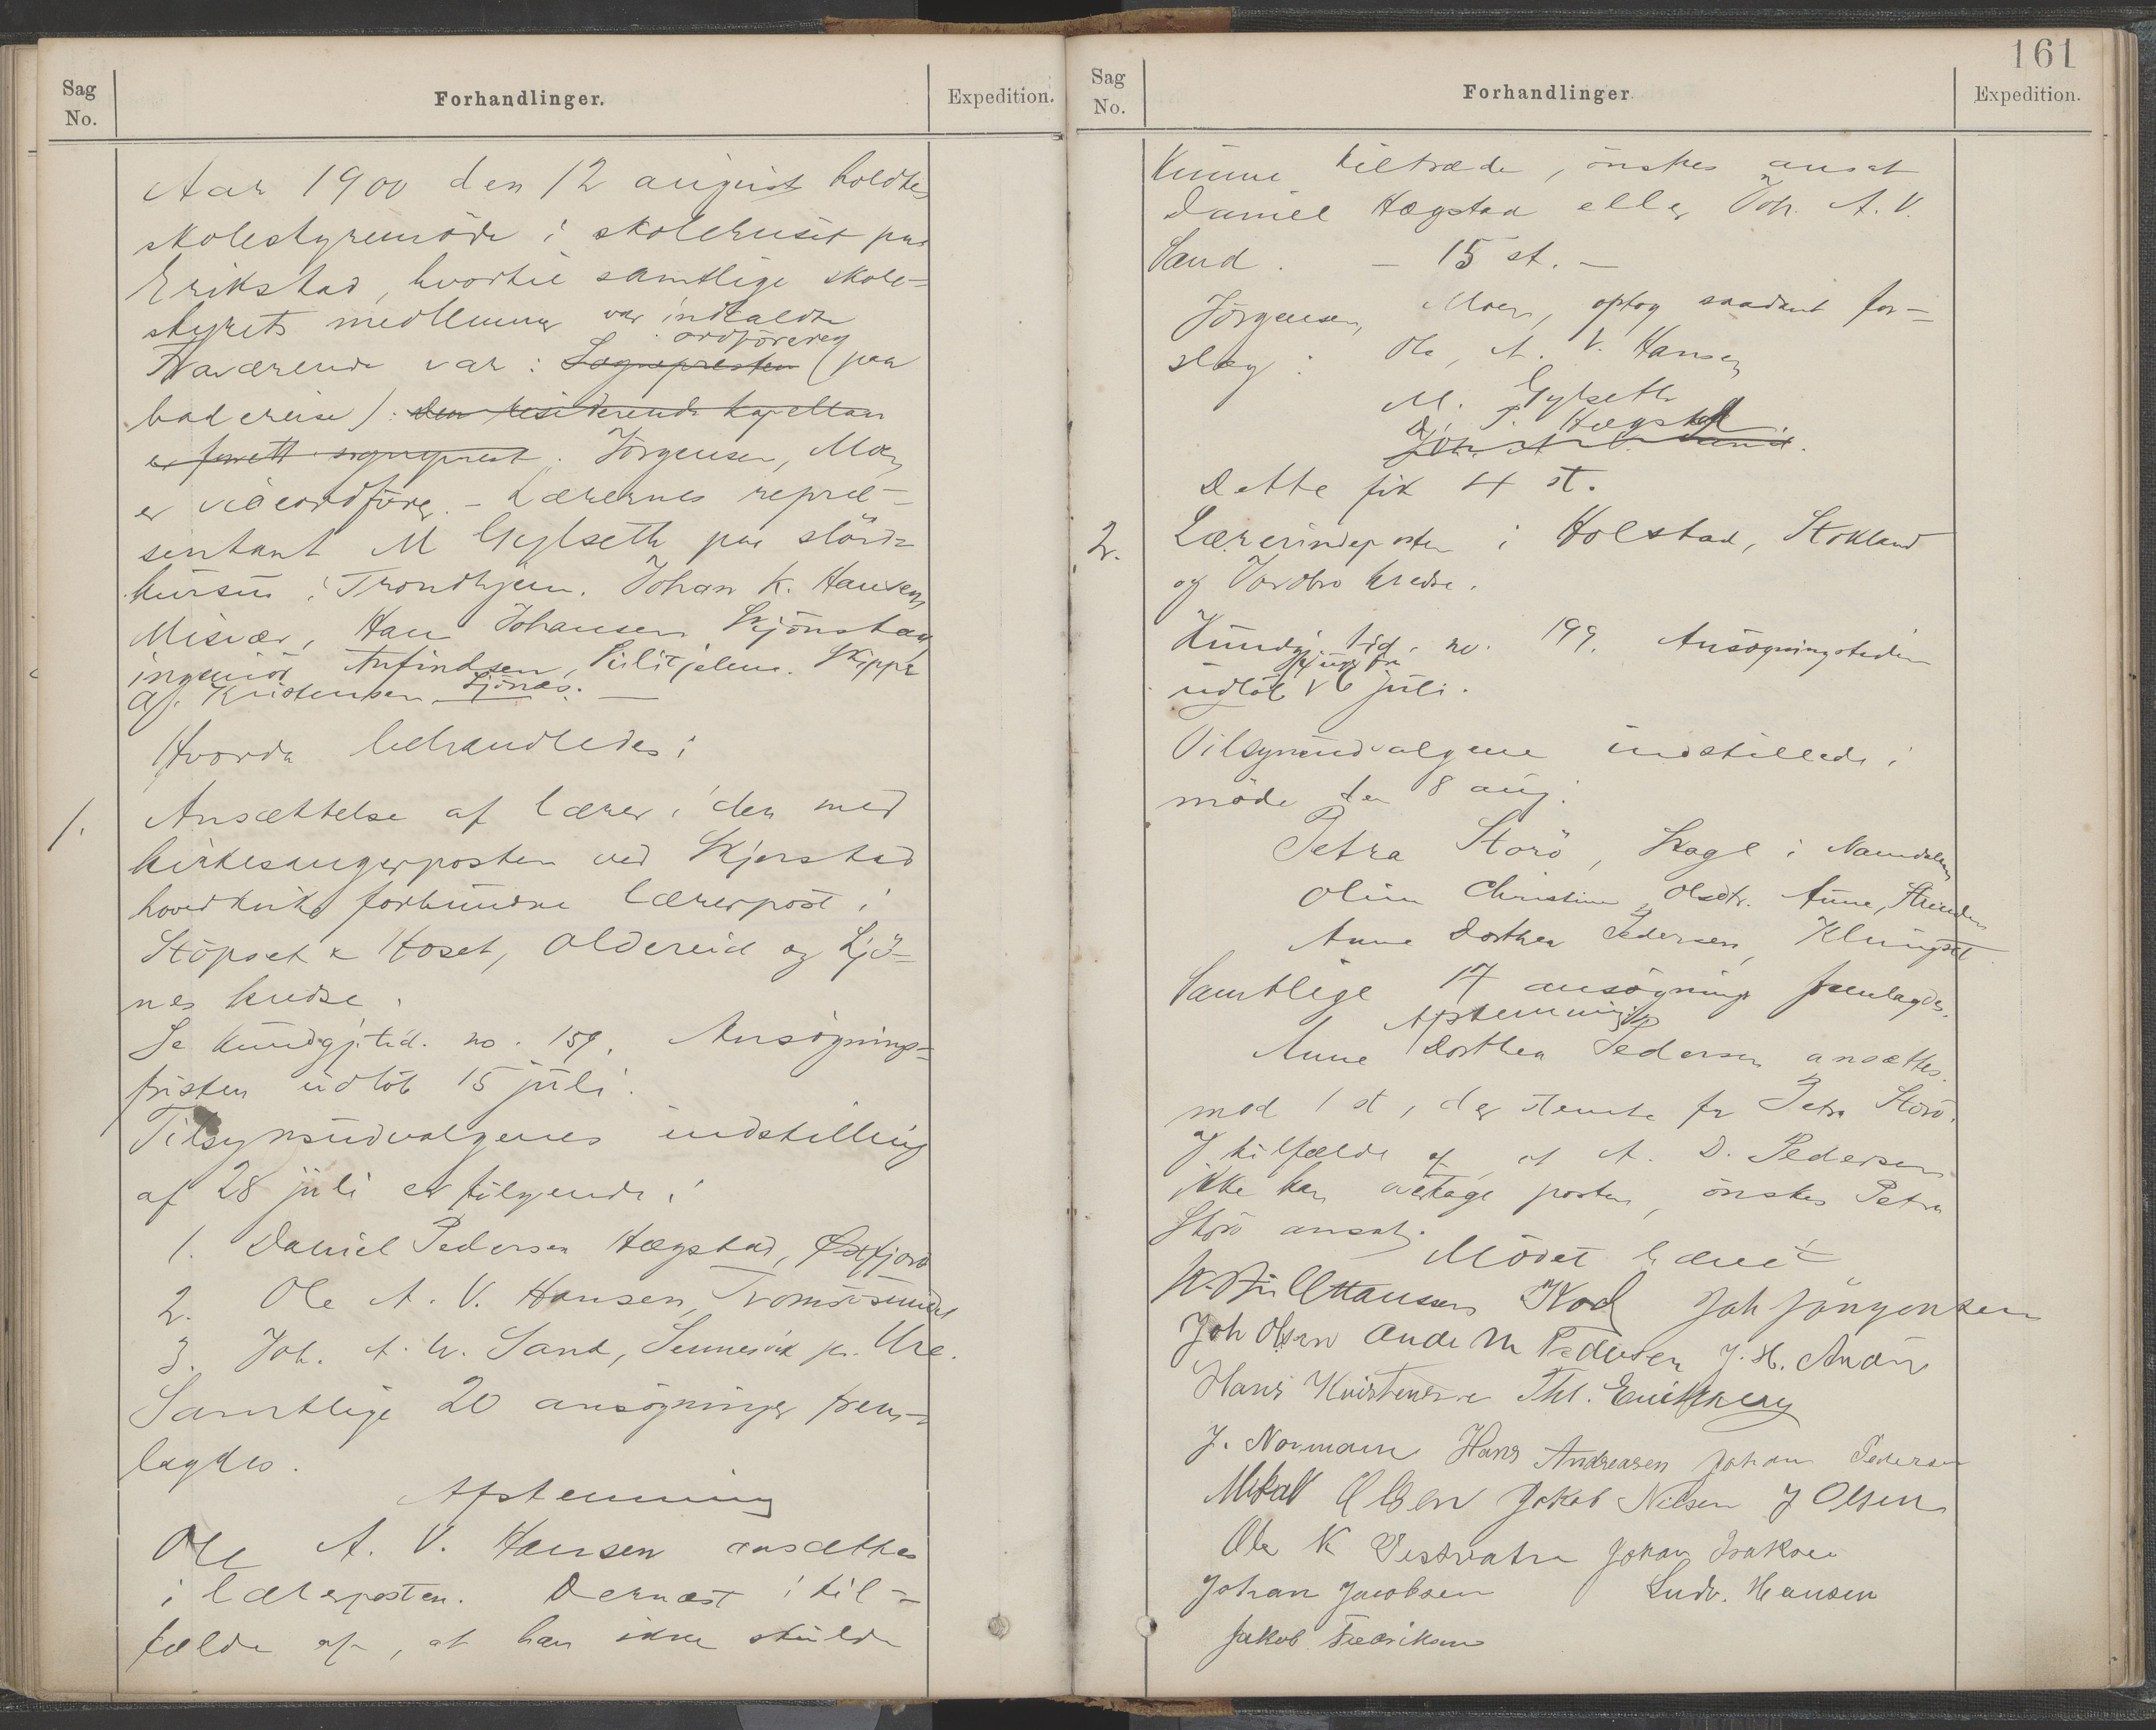 Sag
No.
Forhandlinger.
Expedition.
Aar 1900 den 12 august holdtes
skolestyremöde i skolehuset paa
Erikstad, hvortil samtlige skole-
styrets medlemmer var indkaldte
ordföreren
Fraværende var: Sognepresten (paa
badereise). den residerende kapellan
er forett sogneprest. Jörgensen, Moen
er viceordförer. - Lærernes repræ-
sentant M Gylseth paa slöid-
kursus i Trondhjem. Johan K. Hansen
Misvær, Hans Johansen Skjönstad
ingeniör Anfindsen, Sulitjelma. Skipper
Aj. Kristensen Ljönes. —
Hvorda behandledes:
1.
Ansættelse af lærer i den med
kirkesangerposten ved Skjerstad
hovedkirke forbundne lærerpost i
Stöpset & Hoset, Oldereid og Ljö-
nes kredse.
Se Kundgj.tid. no. 159. Ansögnings-
fristen udlöb 15 juli.
Tilsynsudvalgenes indstilling
af 28 juli er fölgende:
1. Daniel Pedersen Hægstad, Øxfjord
2. Ole A. V. Hansen, Tromsösundet
3. Joh. A. V. Sand, Sennesvik pr. Ure.
Samtlige 20 ansögninger frem-
lagdes.
Afstemning
Ole A. V. Hansen ansættes
i lærerposten. Dernæst i til-
fælde af, at han ikke skulde
161
Sag
No.
Forhandlinger
Expedition.
kunne tiltræde, önskes ansat
Daniel Hægstad eller Joh. A. V.
Sand. — 15 st. —
Jörgensen, Moen, optog saadant for-
slag: Ole A. V. Hansen
M. Gylseth
D. P. Hægstad
Joh. A. V. Sand.
Dette fik 4 st.
2.
Lærerindeposten i Holstad, Stokland
og Vordbro kredse.
Kundgj. tid. no. 199. Ansögningstiden
udlöb 16 juli.
Tilsynsudvalgene indstillede i
möde den 8 aug.
Petra Storö, Skage i Namdalen
Oline Christine Olsdtr. Aune, Strinden
Anne Dorthea Pedersen, Klungset
Samtlige 17 ansögninger fremlagdes.
Afstemning
Anne Dorthea Pedersen ansættes.
mod 1 st, der stemte for Petra Storö.
I tilfælde af at A. D. Pedersen
ikke kan overtage posten, önskes Petra
Storö ansat.
Mödet hævet
Hansen Joh Jörgensen
Joh Olsen Ande M Pedersen J. H. Andr
Hans Kristensen Thl.
J. Normann Hans Andreasen Johan Pedersen
Mikal Olsen Jakob Nilsen J Olsen
Ole K Vestvatn Johan Isaksen
Johan Jacobsen Ludv. Hansen
Jakob Fredriksen